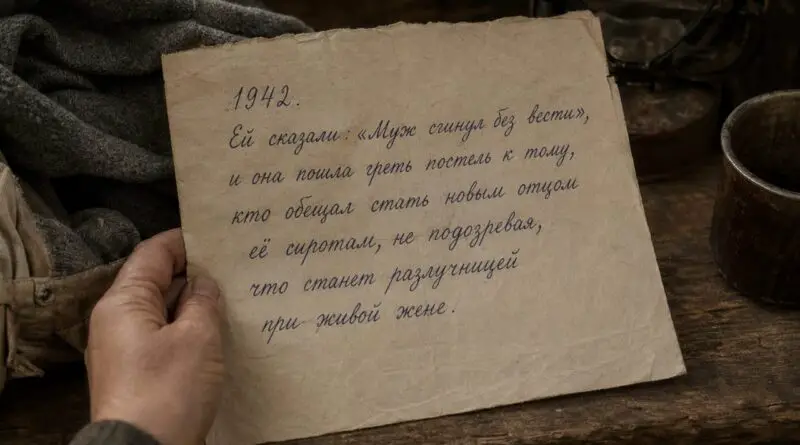 1942.
Ей сказали: «Муж сгинул без вести»,
и она пошла греть постель к тому,
кто обещал стать новым отцом
её сиротам, не подозревая,
что станет разлучницей
при живой жене.